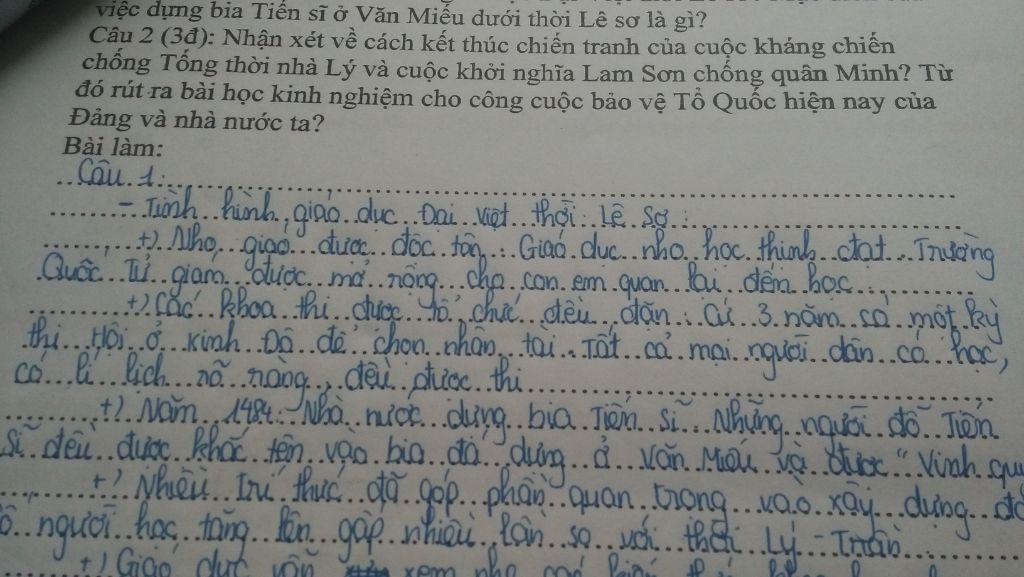 việc dựng bia Tiến sĩ ở Văn Miếu dưới thời Lê sơ là gì?
Câu 2 (3đ): Nhận xét về cách kết thúc chiến tranh của cuộc kháng chiến
chống Tống thời nhà Lý và cuộc khởi nghĩa Lam Sơn chống quân Minh? Từ
đó rút ra bài học kinh nghiệm cho công cuộc bảo vệ Tổ Quốc hiện nay của
Đảng và nhà nước ta?
Bài làm:
Câu 1:
- Tình hình giáo dục Đại Việt thời Lê Sơ:
+) Nho giáo được độc tôn. Giáo dục nho học thịnh đạt. Trường
Quốc Tử giám được mở rộng cho con em quan lại đến học.
+) Các khoa thi được tổ chức đều đặn. Cứ 3 năm có một kỳ
thi Hội ở kinh Đô để chọn nhân tài. Tất cả mọi người dân có học,
có lí lịch rõ ràng, đều được thi
+) Năm 1484: Nhà nước dựng bia Tiến sĩ. Những người đỗ Tiến
sĩ đều được khắc tên vào bia đá dựng ở Văn Miếu và được "Vinh quy
+) Nhiều trí thức đã góp phần quan trọng vào xây dựng
người học tăng lên gấp nhiều lần so với thời Lý - Trần
+) Giáo dục vẫn xem nhẹ